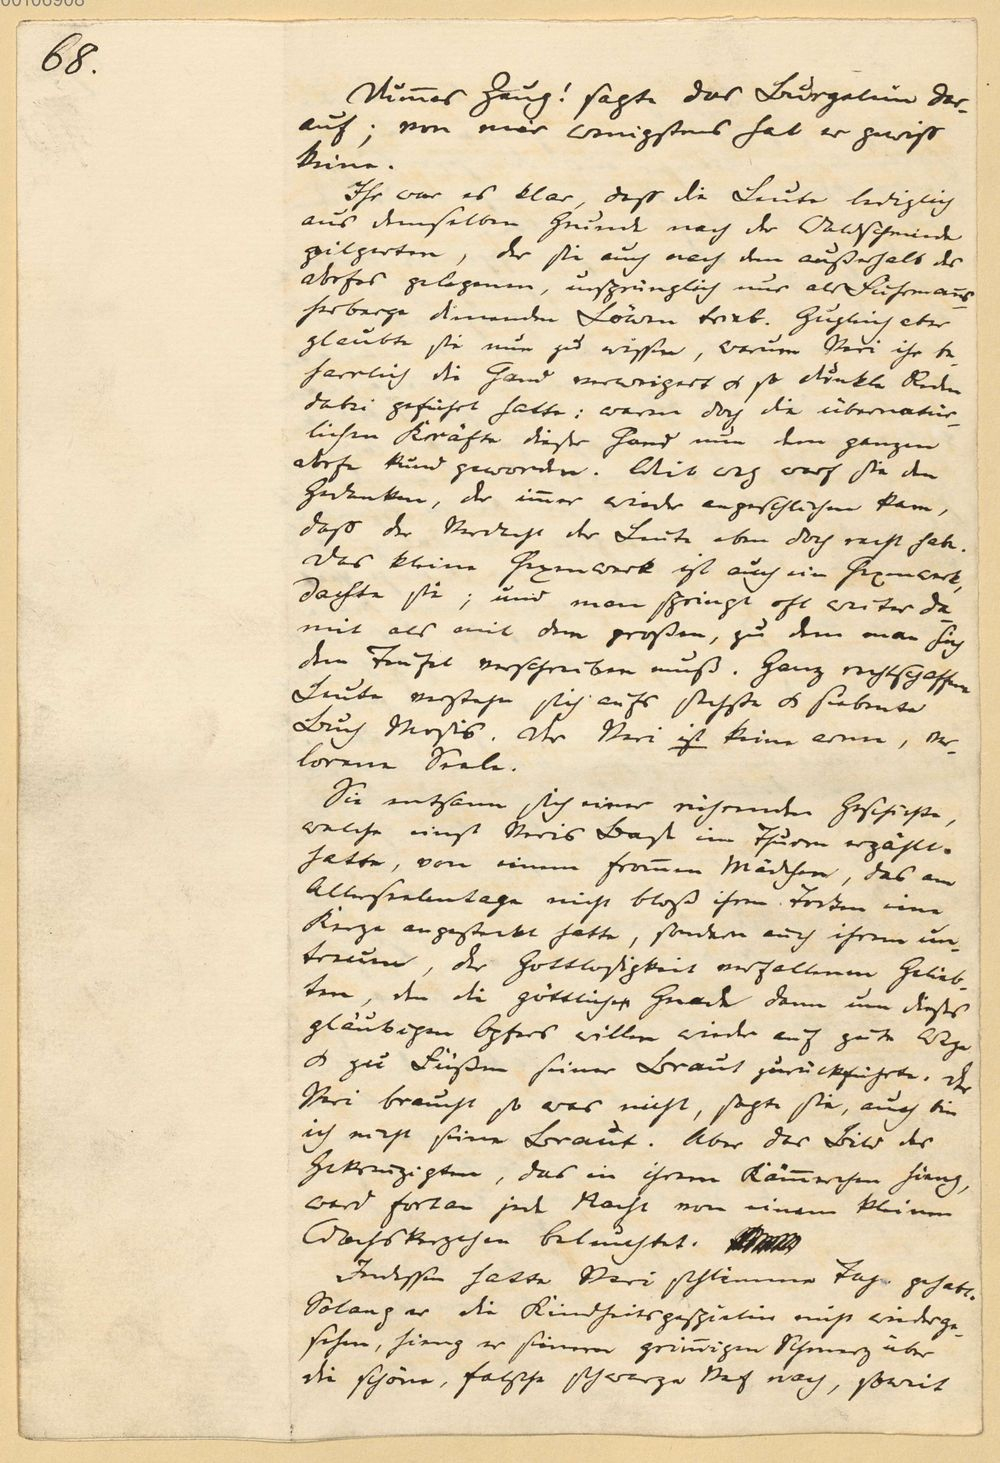 00106908
68.
Dummes Zeug! sagte das Burgelein dar-
auf; von mir wenigstens hat er gewiss
keine.
Ihr war es klar, dass die Leute lediglich
aus demselben Grunde nach der Waldschmiede
pilgerten, der sie auch nach dem außerhalb des
Dorfes gelegenen, ursprünglich nur als Fuhrmanns-
herberge dienenden Löwen trieb. Zugleich aber
glaubte sie nun zu wissen, warum Veri ihr be-
harrlich die Hand verweigert & so dunkle Reden
dabei geführt hatte: waren doch die übernatür-
lichen Kräfte dieser Hand nun dem ganzen
Dorfe kund geworden. Weit weg warf sie den
Gedanken, der immer wieder angeschlichen kam,
dass der Verdacht der Leute eben doch recht habe.
Das kleine Hexenwerk ist auch ein Hexenwerk,
dachte sie; und man springt oft weiter da-
mit als mit dem großen, zu dem man sich
dem Teufel verschreiben muß. Ganz rechtschaffene
Leute verstehn sich aufs sechste & siebente
Buch Mosis. Der Veri ist keine arme, ver-
lorene Seele.
Sie entsann sich einer rührenden Geschichte,
welche einst Veris Basl im Thurm erzählt
hatte, von einem frommen Mädchen, das am
Allerseelentage nicht bloß ihren Toten eine
Kerze angesteckt hatte, sondern auch ihrem un-
treuen, der Gottlosigkeit verfallenen Gelieb-
ten, den die göttliche Gnade dann um dieses
gläubigen Opfers willen wieder auf gute Wege
& zu Füßen seiner Braut zurückführte. Der
Veri braucht so was nicht, sagte sie, auch bin
ich nicht seine Braut. Aber das Bild des
Gekreuzigten, das in ihrem Kämmerchen hieng,
ward fortan jede Nacht von einem kleinen
Wachskerzchen beleuchtet.
Indessen hatte Veri schlimme Tage gehabt.
Solang er die Kindheitsgespielin nicht wiederge-
sehen, hieng er seinem grimmigen Schmerz über
die schöne, falsche schwarze nach, soweit